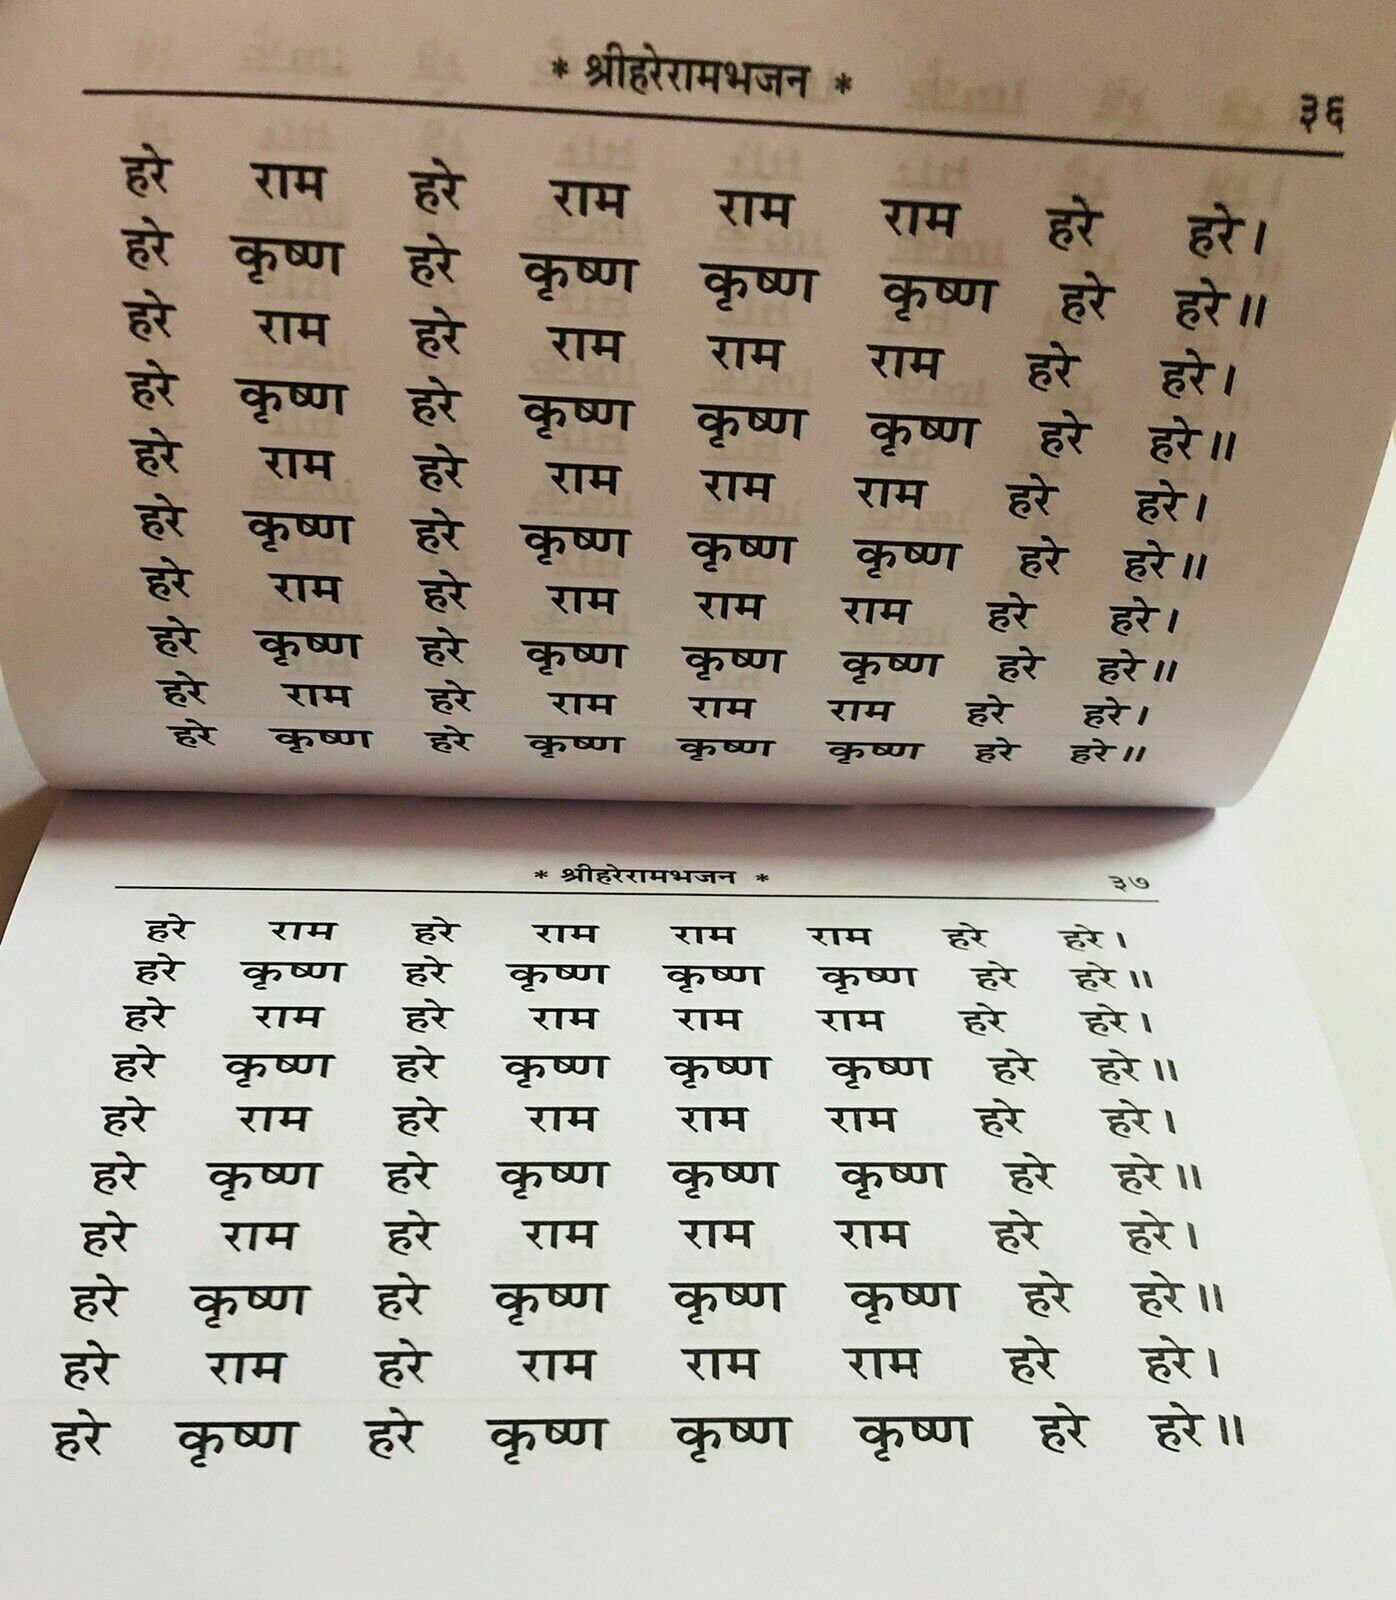 * श्रीहरेरामभजन * ३६
हरे राम हरे राम राम राम हरे हरे।
हरे कृष्ण हरे कृष्ण कृष्ण कृष्ण हरे हरे॥
हरे राम हरे राम राम राम हरे हरे।
हरे कृष्ण हरे कृष्ण कृष्ण कृष्ण हरे हरे॥
हरे राम हरे राम राम राम हरे हरे।
हरे कृष्ण हरे कृष्ण कृष्ण कृष्ण हरे हरे॥
हरे राम हरे राम राम राम हरे हरे।
हरे कृष्ण हरे कृष्ण कृष्ण कृष्ण हरे हरे॥
हरे राम हरे राम राम राम हरे हरे।
हरे कृष्ण हरे कृष्ण कृष्ण कृष्ण हरे हरे॥
* श्रीहरेरामभजन * ३७
हरे राम हरे राम राम राम हरे हरे।
हरे कृष्ण हरे कृष्ण कृष्ण कृष्ण हरे हरे॥
हरे राम हरे राम राम राम हरे हरे।
हरे कृष्ण हरे कृष्ण कृष्ण कृष्ण हरे हरे॥
हरे राम हरे राम राम राम हरे हरे।
हरे कृष्ण हरे कृष्ण कृष्ण कृष्ण हरे हरे॥
हरे राम हरे राम राम राम हरे हरे।
हरे कृष्ण हरे कृष्ण कृष्ण कृष्ण हरे हरे॥
हरे राम हरे राम राम राम हरे हरे।
हरे कृष्ण हरे कृष्ण कृष्ण कृष्ण हरे हरे॥